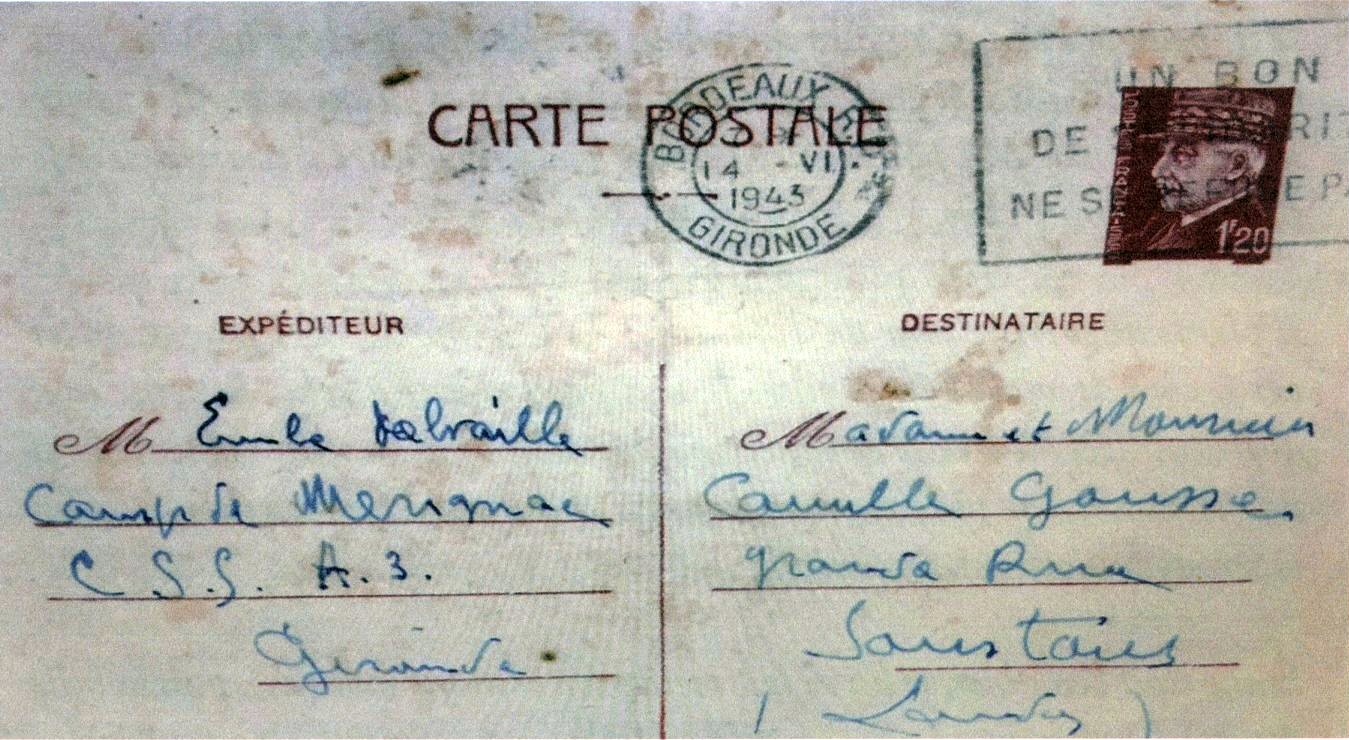 CARTE POSTALE
BORDEAUX
14 - VI.
1943
GIRONDE
UN BON
DE
NE S
1f20
EXPÉDITEUR
M Emile Dalvaille
Camp de Merignac
C S.S. A.3.
Gironde
DESTINATAIRE
Madame et Monsieur
Camille Gousse,
grande Rue
Soustons
(Landes)